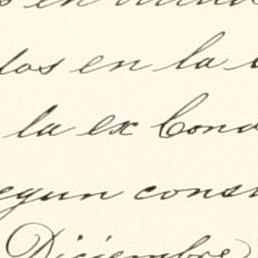 en
los en la
la ex Cond
egun cons
Diciembre